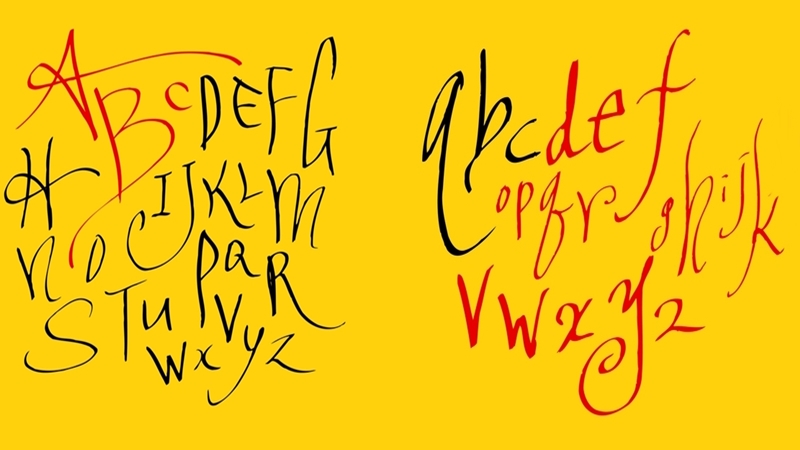 ABCDEFG
HIJKLM
nopQR
STUV
wxyz
abcdef
opqr ghijk
vwxyz